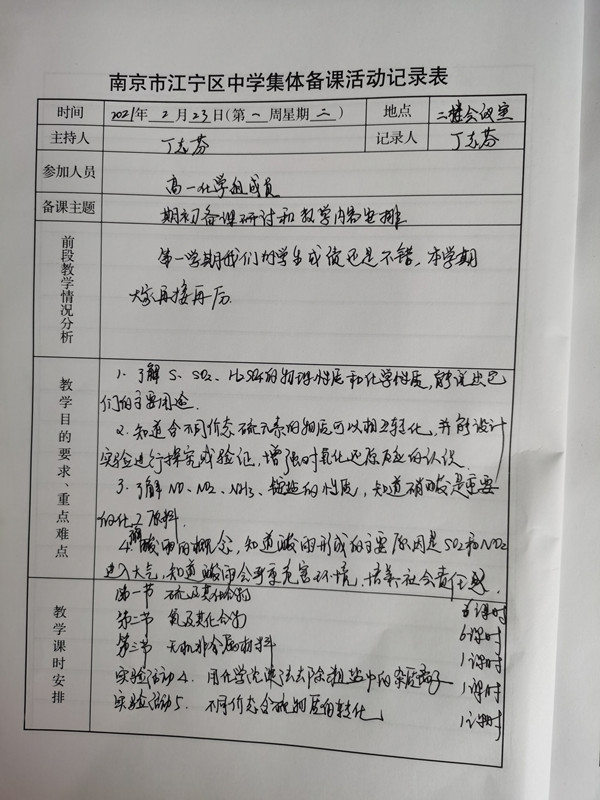 南京市江宁区中学集体备课活动记录表
时间 2021年 2 月 23 日(第 一 周星期 二 ) 地点 二楼会议室
主持人 丁志芬 记录人 丁志芬
参加人员 高一化学组成员
备课主题 期初备课研讨和教学内容安排
前段教学情况分析
第一学期我们的学生成绩还是不错,本学期
大家再接再厉.
教学目的要求、重点难点
1. 了解S、SO2、H2SO4的物理性质和化学性质,能说出它
们的主要用途.
2. 知道含不同价态硫元素的物质可以相互转化,并能设计
实验进行探究或验证,增强对氧化还原反应的认识.
3. 了解NO、NO2、NH3、铵盐的性质,知道硝酸是重要
的化工原料.
4. 了解酸雨的概念,知道酸雨形成的主要原因是SO2和NO2
进入大气,知道酸雨会严重危害环境,培养社会责任感.
教学课时安排
第一节 硫及其化合物 6课时
第二节 氮及其化合物 6课时
第三节 无机非金属材料 1课时
实验活动4. 用化学沉淀法去除粗盐中的杂质离子 1课时
实验活动5. 不同价态含硫物质的转化 1课时